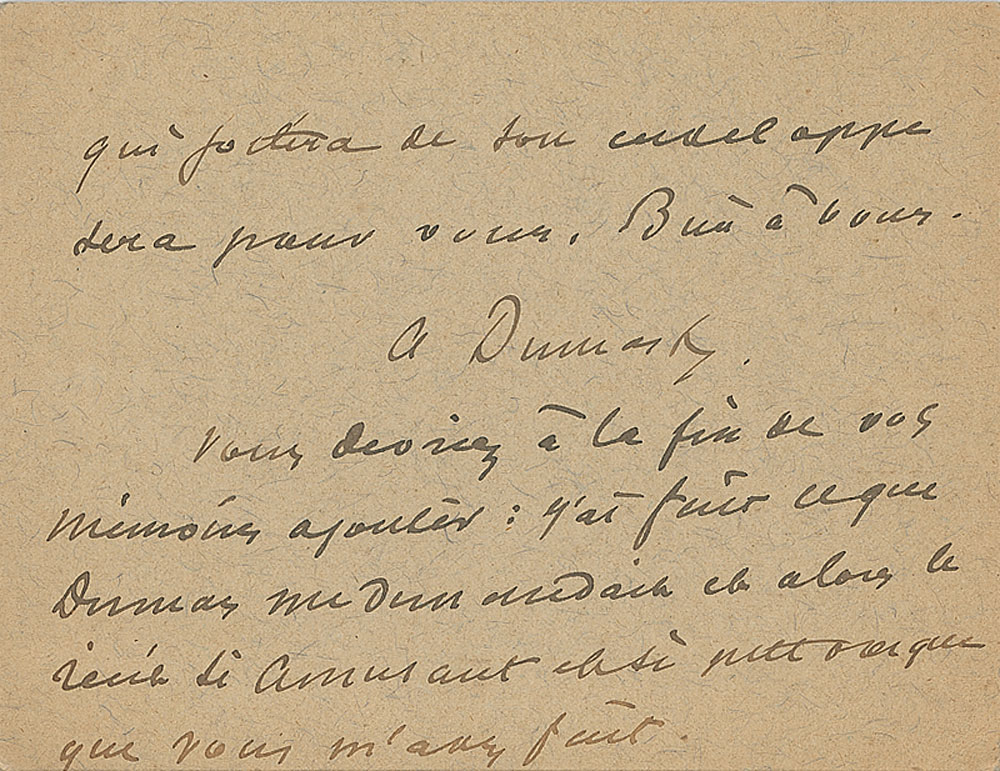 qui sortira de son enveloppe
sera pour vous. Bien à vous.
A Dumas fs.
Vous devriez à la fin de vos
mémoires ajouter : j'ai fait ce que
Dumas me demandait et alors le
récit si amusant et si pittoresque
que vous m'avez fait.